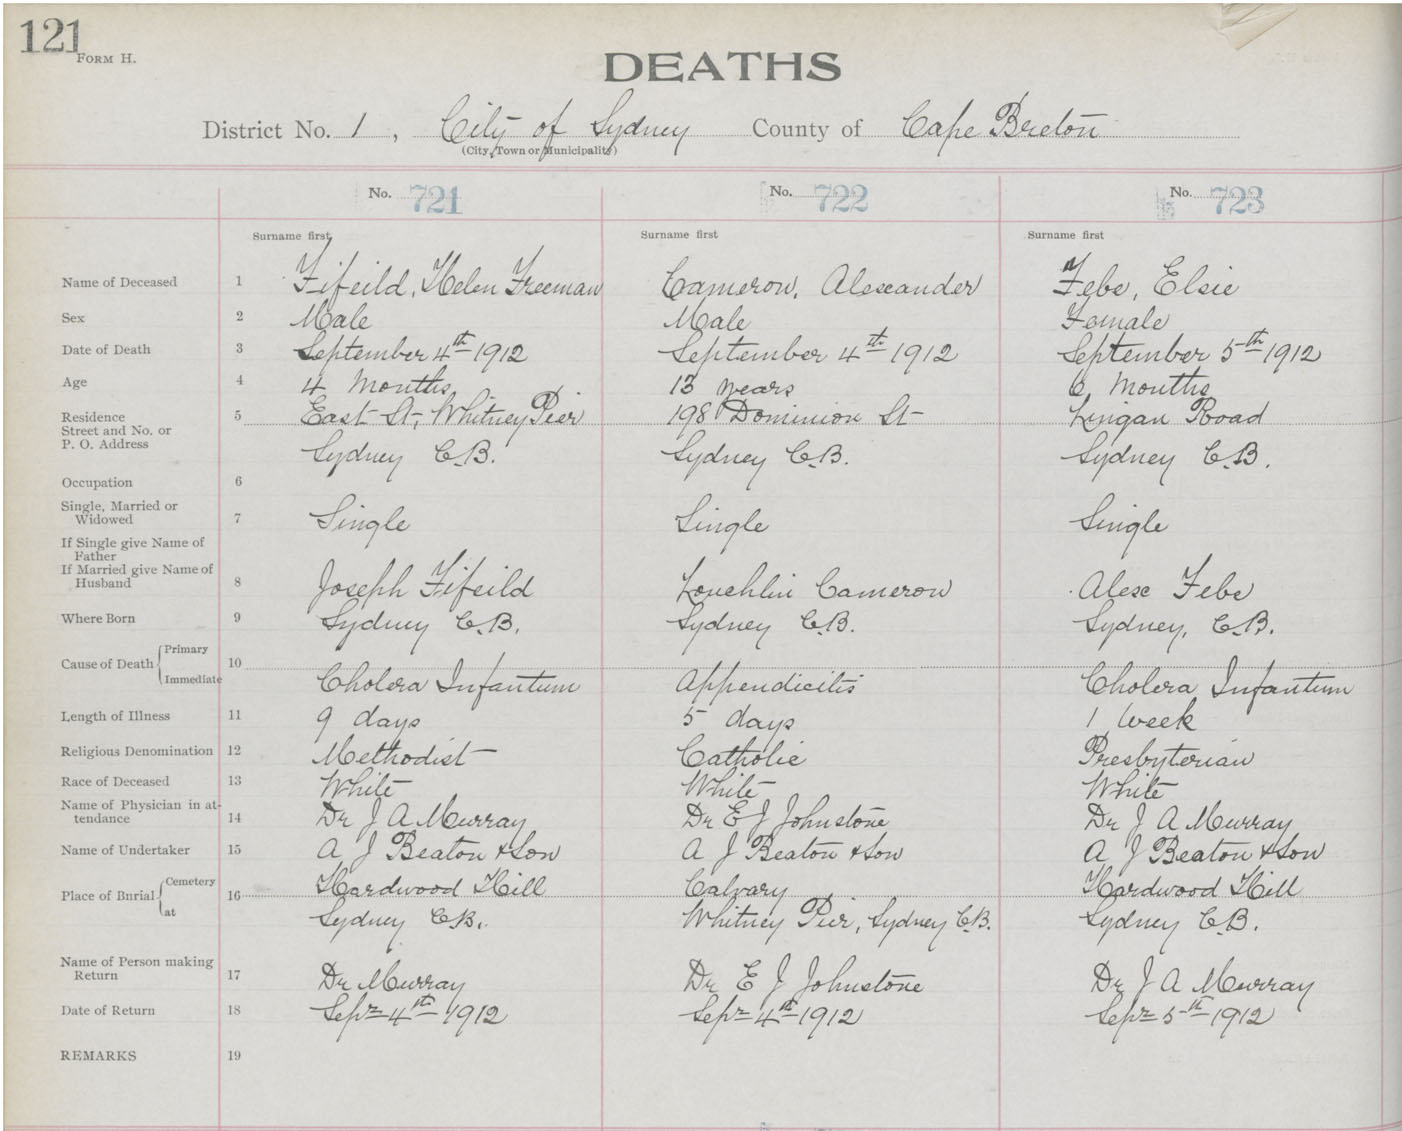 121
FORM H.
DEATHS
District No. 1, City of Sydney County of Cape Breton
(City, Town or Municipality)
No. 721 No. 722 No. 723
Surname first Surname first Surname first
Name of Deceased 1 Fifeild, Helen Freeman Cameron, Alexander Febe, Elsie
Sex 2 Male Male Female
Date of Death 3 September 4th 1912 September 4th 1912 September 5th 1912
Age 4 4 Months 13 years 6 Months
Residence 5 East St, Whitney Pier 198 Dominion St Lingan Road
Street and No. or
P. O. Address Sydney C.B. Sydney C.B. Sydney C.B.
Occupation 6
Single, Married or
Widowed 7 Single Single Single
If Single give Name of
Father
If Married give Name of
Husband 8 Joseph Fifeild Louchlin Cameron Alex Febe
Where Born 9 Sydney C.B. Sydney C.B. Sydney, C.B.
Cause of Death Primary 10
Immediate Cholera Infantum Appendicitis Cholera Infantum
Length of Illness 11 9 days 5 days 1 Week
Religious Denomination 12 Methodist Catholic Presbyterian
Race of Deceased 13 White White White
Name of Physician in at-
tendance 14 Dr J A Murray Dr E J Johnstone Dr J A Murray
Name of Undertaker 15 A J Beaton & Son A J Beaton & Son A J Beaton & Son
Place of Burial Cemetery 16 Hardwood Hill Calvary Hardwood Hill
at Sydney C.B. Whitney Pier, Sydney C.B. Sydney C.B.
Name of Person making
Return 17 Dr Murray Dr E J Johnstone Dr J A Murray
Date of Return 18 Sepr 4th 1912 Sepr 4th 1912 Sepr 5th 1912
REMARKS 19